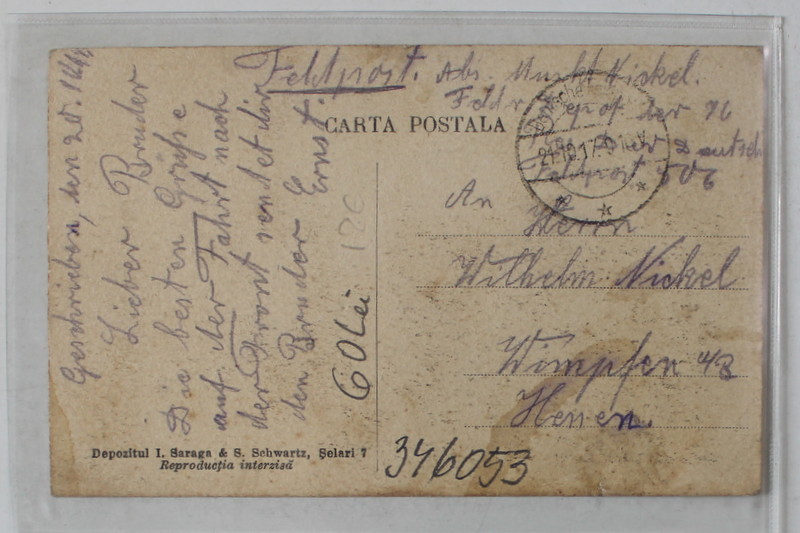 Feldpost. Abs. Musk. Nickel.
Feldr. Depot der 76
Res. Div. Deutsch
Feldpost 506
CARTA POSTALA
Deutsche
21.10.17
An
Herrn
Wilhelm Nickel
Wimpfen 48
Hessen.
Geschrieben, den 20.
Lieber Bruder
Die besten Grüße
auf der Fahrt nach
der Front sendet dir
dein Bruder E
Ernst.
60 Lei
12€
346053
Depozitul I. Saraga & S. Schwartz, Șelari 7
Reproducția interzisă